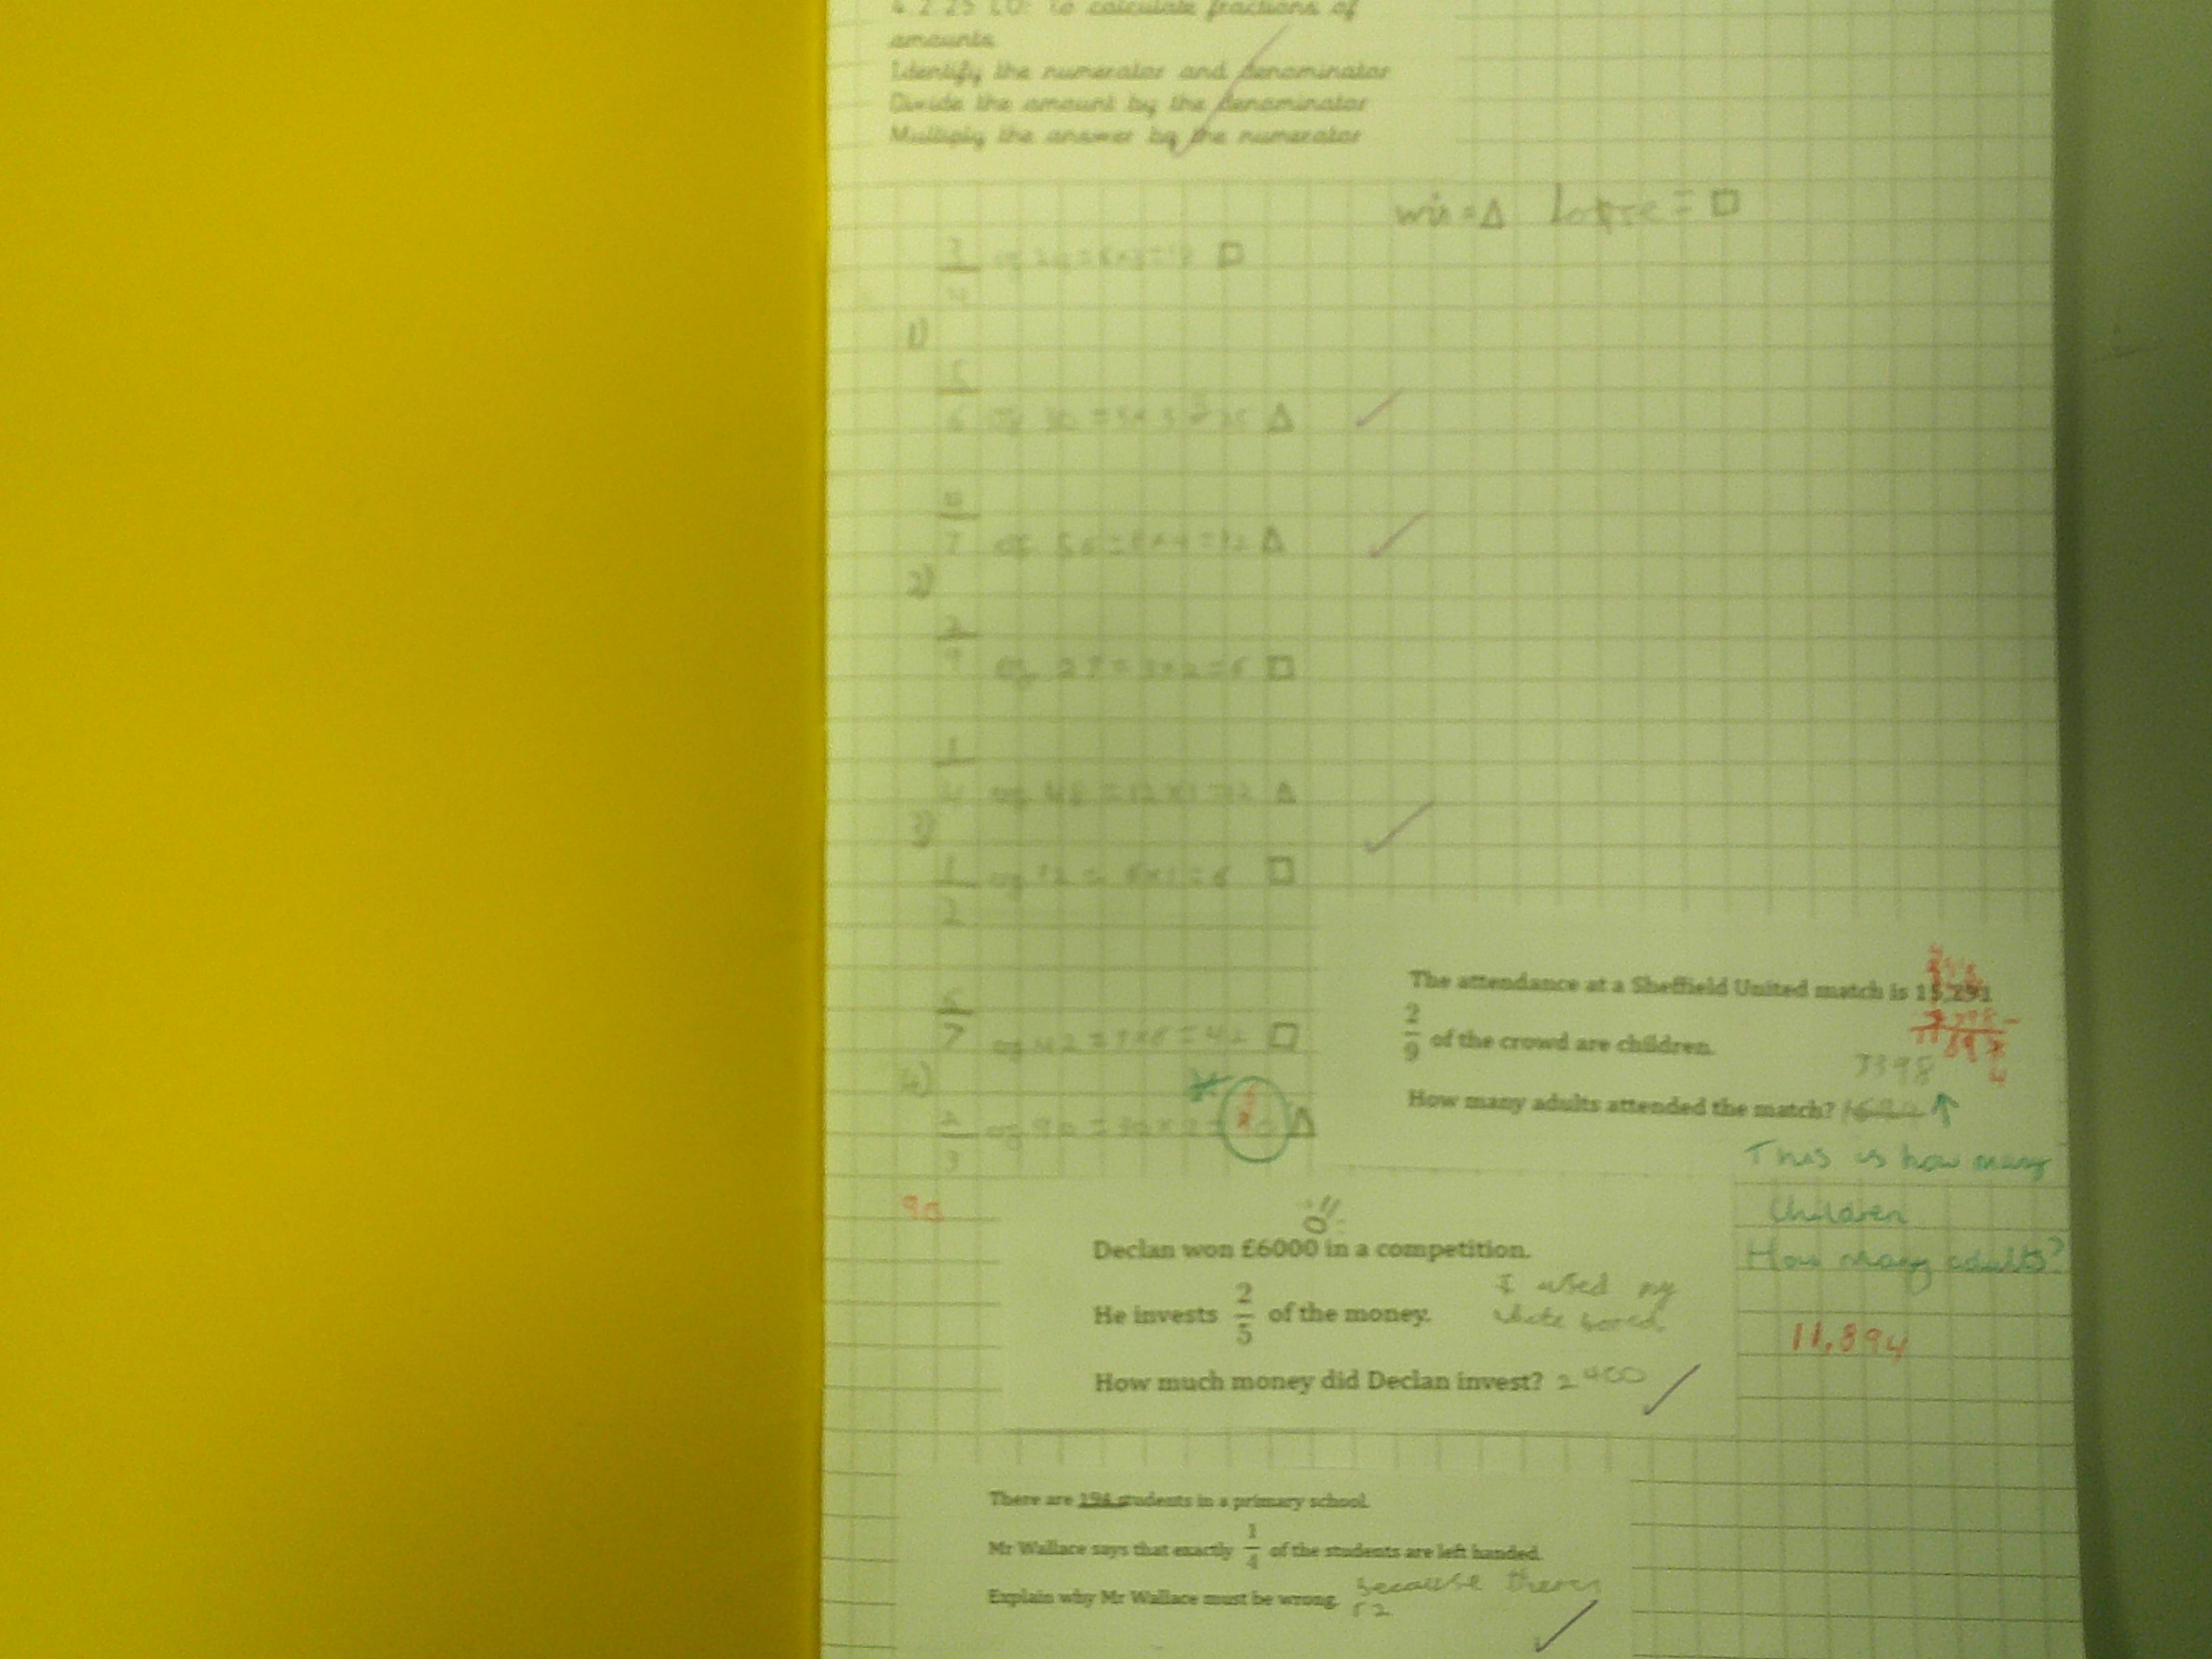 4.2.25 LO: To calculate fractions of
amounts
Identify the numerator and denominator
Divide the amount by the denominator
Multiply the answer by the numerator
win = Δ
1)
6 of 30 = 5 x 5 = 25 Δ
7 of 56 =
2)
2
9 of 27 = 3 x 2 = 6 □
1
4 of 48 = 12 x 1 = 12 Δ
3)
1 of 12 = 6 x 1 = 6 □
2
7 of 42 =
4)
2 of 90 = 30 x 2 =
3
90
The attendance at a Sheffield United match is 15,291
2
9 of the crowd are children.
3398
How many adults attended the match?
This is how many
children
How many adults?
11,894
Declan won £6000 in a competition.
He invests 2/5 of the money.
I used my
white bored
How much money did Declan invest? 2400
There are 194 students in a primary school.
Mr Wallace says that exactly 1/4 of the students are left handed.
Explain why Mr Wallace must be wrong. because theres
r2